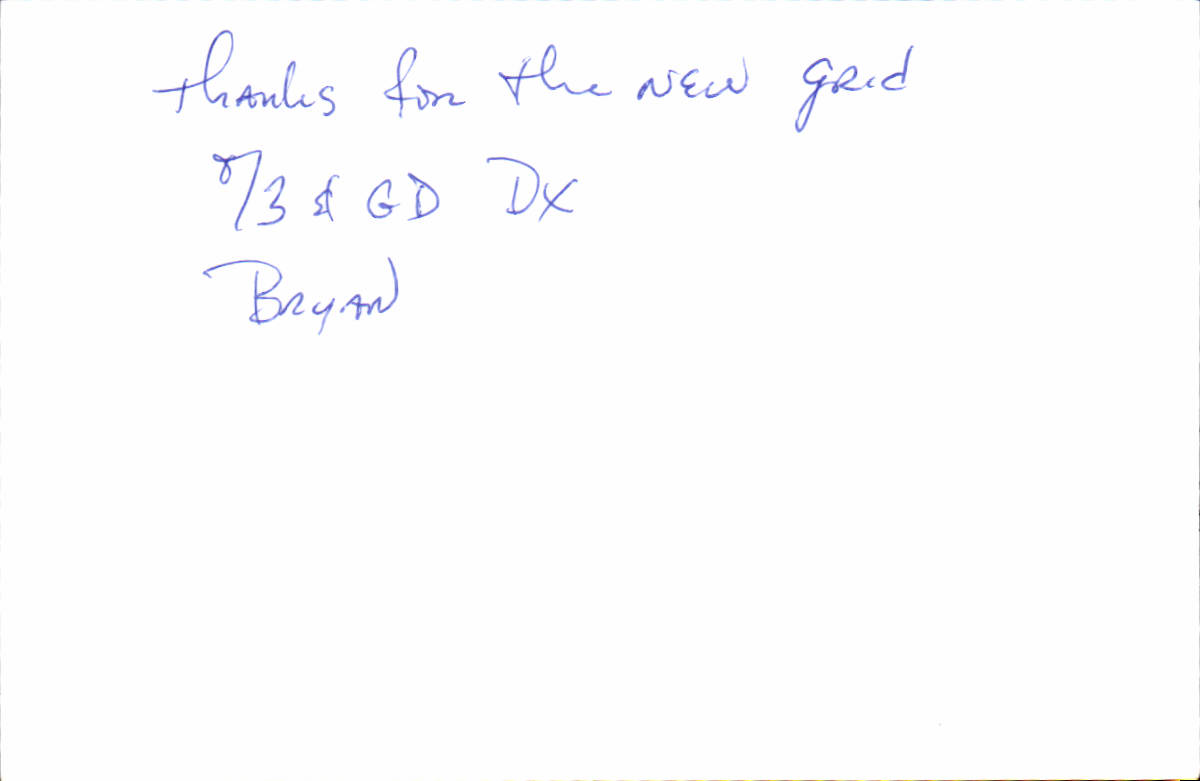 Thanks for the new grid
73 & GD DX
Bryan